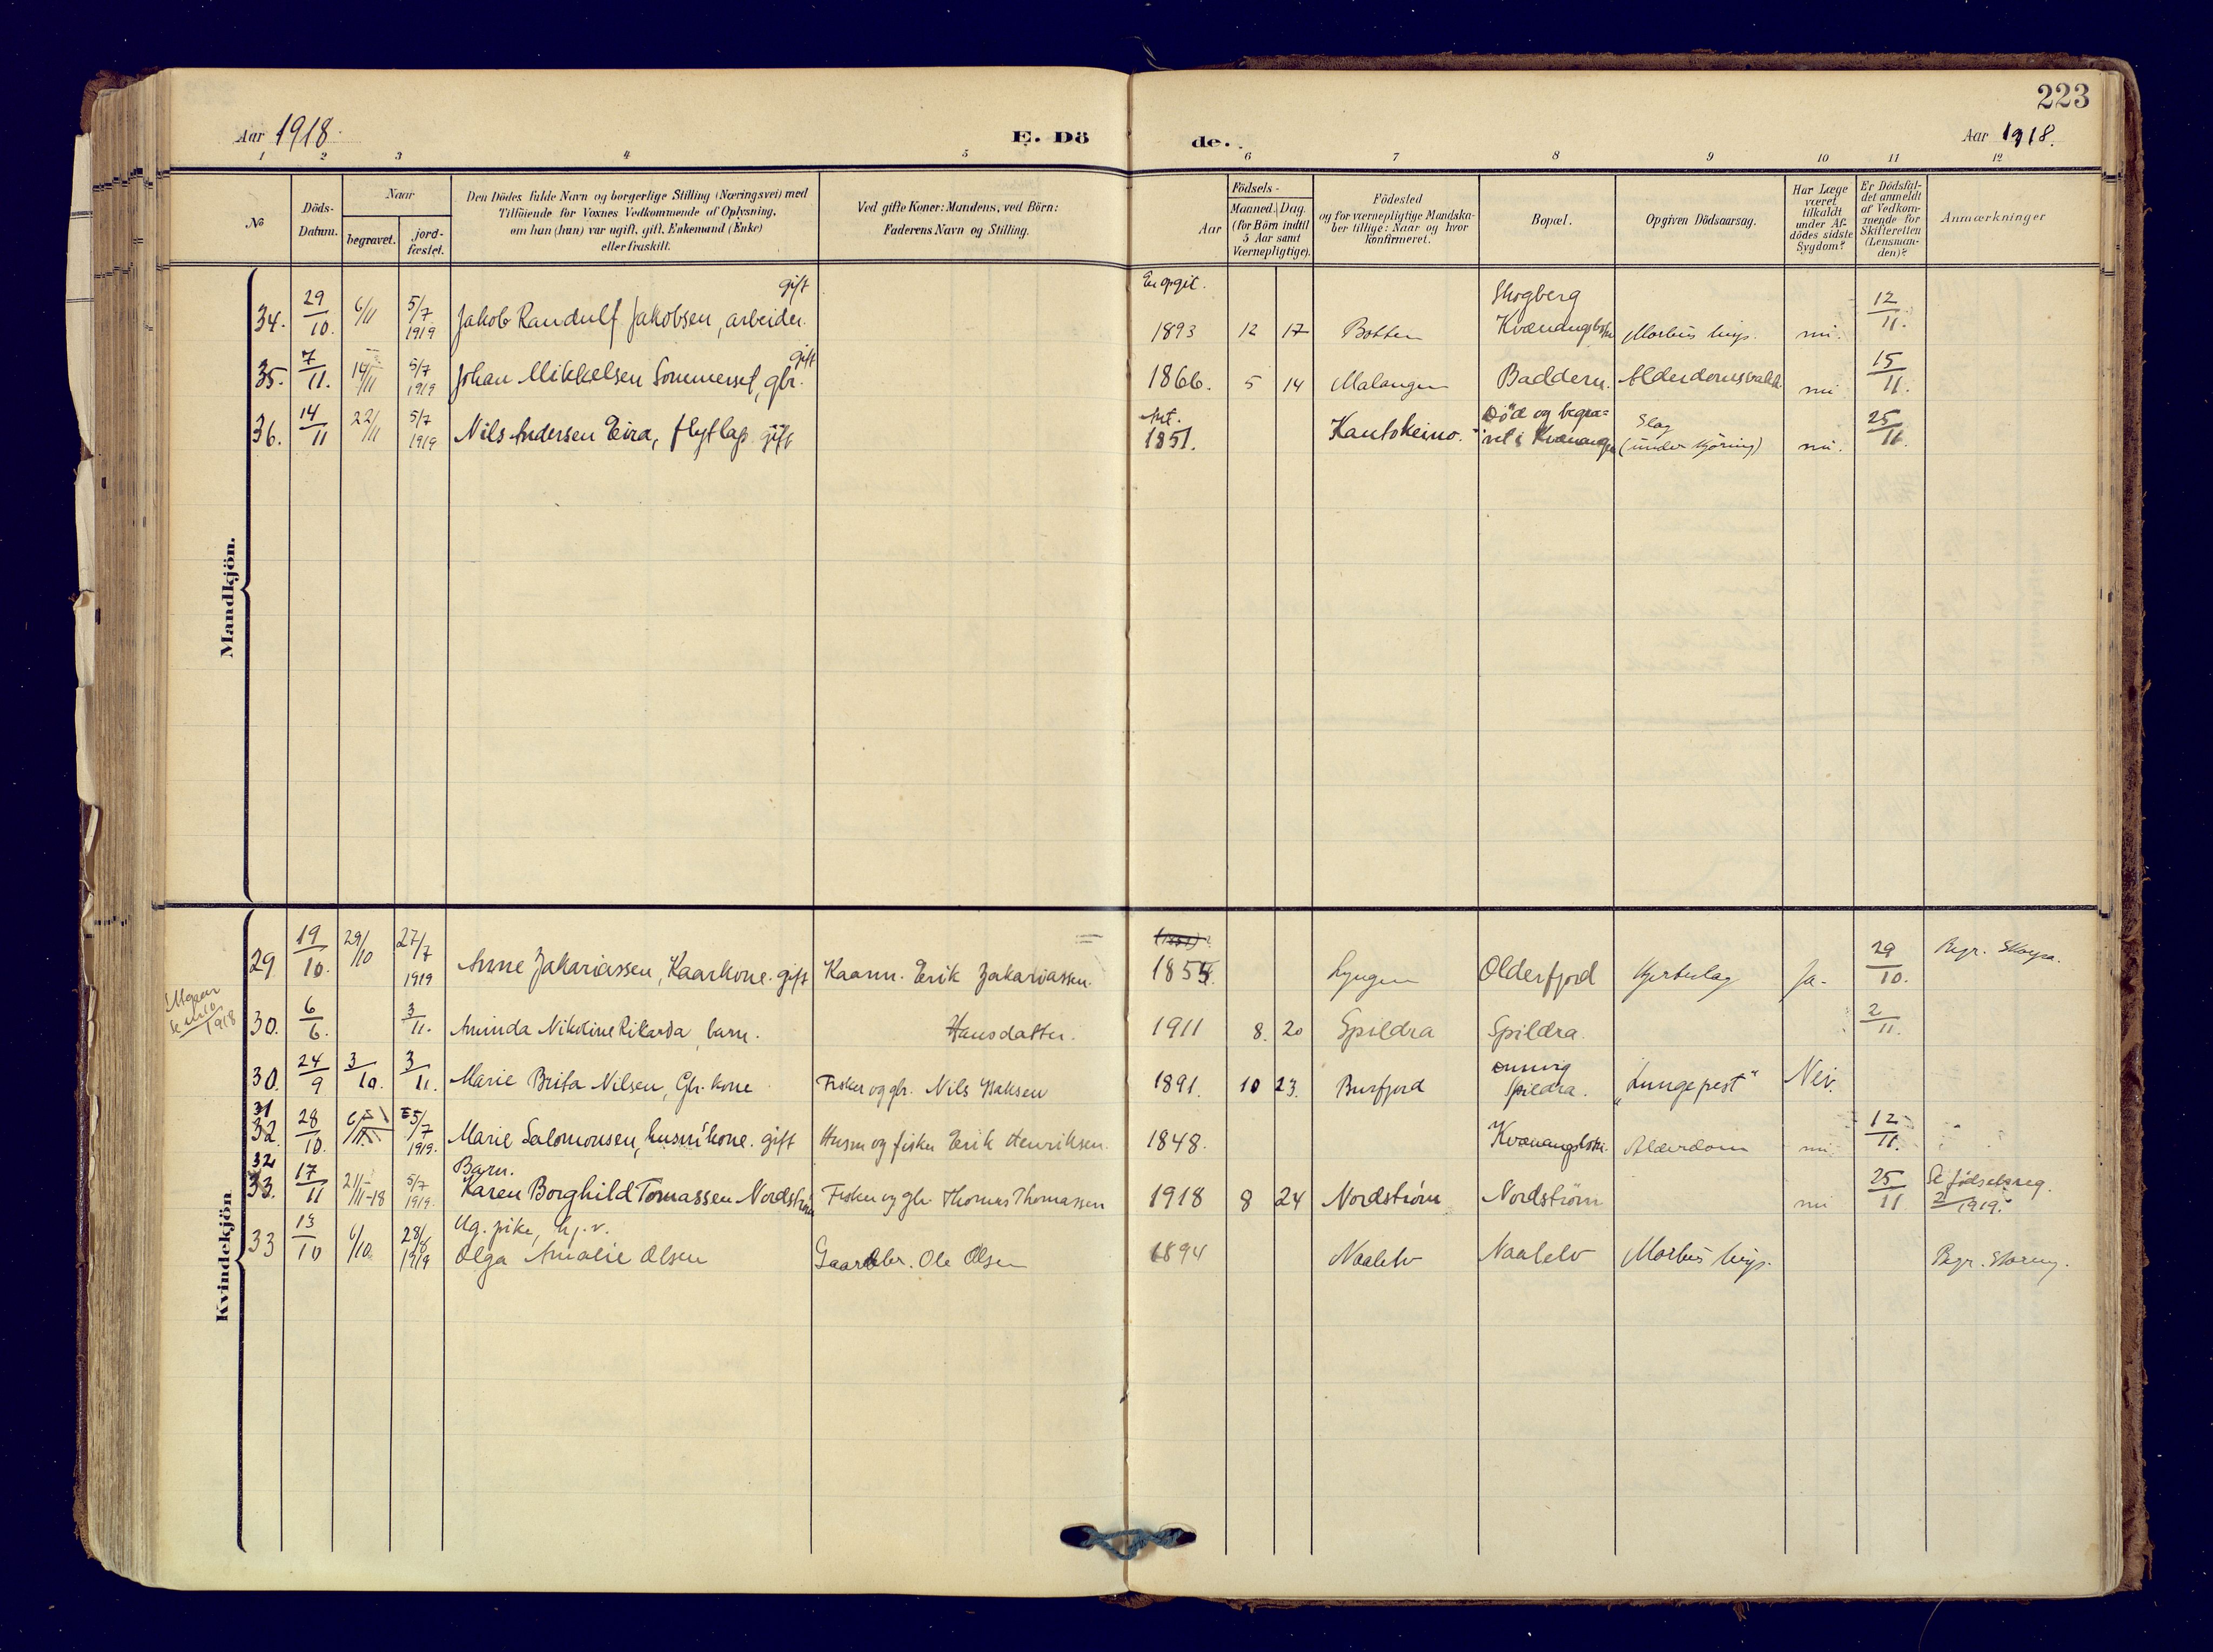 223
Aar 1918.
E. Dö
de.
Aar 1918.
1 2 3 4 5 6 7 8 9 10 11 12
No
Döds-Datum.
Naar
begravet.
jord-fæstet.
Den Dödes fulde Navn og borgerlige Stilling (Næringsvei) med
Tilföiende for Voxnes Vedkommende af Oplysning,
om han (hun) var ugift, gift, Enkemand (Enke)
eller fraskilt.
Ved gifte Koner: Mandens, ved Börn:
Faderens Navn og Stilling.
Födsels-
Aar
Maaned. Dag.
(for Börn indtil
5 Aar samt
Værnepligtige).
Födested
og for værnepligtige Mandska-
ber tillige: Naar og hvor
konfirmeret.
Bopæl.
Opgiven Dödsaarsag.
Har Læge
været
tilkaldt
under Af-
dödes sidste
Sygdom?
Er Dödsfal-
det anmeldt
af Vedkom-
mende for
Skifteretten
(Lensman-
den)?
Anmærkninger
Mandkjön.
gift
34. 29/10. 6/11 5/7 1919 Jakob Randulf Jakobsen, arbeider. 1893 12 17 Botten Skogberg Morbus 12/11.
gift
35. 7/11. 14/11 5/7 1919 Johan Mikkelsen Sommerset, gbr. 1866. 5 14 Malangen Baddern. 15/11.
36. 14/11 22/11 5/7 1919 Nils Andersen Eira, flytlap gift 1851. Kautokeino. Död og begra=
vet i Kvænangen Slag
(under kjöring) 25/11.
Kvindekjön
29 19/10. 29/10 27/7 1919 Anne Zakariassen, Kaarkone. gift Kaarm. Erik Zakariassen. Lyngen Olderfjord Hjerteslag Ja. 29/10.
1918
30. 6/6. 3/11. Aminda Nikoline Rikarda, barn. Hansdatter. 1911 8. 20 Spildra Spildra. 2/11.
30. 24/9 3/10. 3/11. Marie Brita Nilsen, Gbr. kone Fisker og gbr. Nils Isaksen 1891. 10 23. Burfjord
Spildra. "Lungepest" Nei.
31
32. 28/10. 5/7 1919. Marie Salomonsen, husm.kone. gift Husm og fisker Erik Henriksen. 1848. Alderdom 12/11.
32
33. 17/11 21/11-18 5/7 1919. Barn.
Karen Borghild Tomassen Nordström Fisker og gbr. Thomas Thomassen 1918 8 24 Nordström Nordström 25/11 Se födselsreg.
2/1919.
33 13/10 6/10. 28/6 1919 Ug. pike, hj. v.
Olga Amalie Olsen Gaardbr. Ole Olsen 1894 Naalelv Naalelv Morbus Begr.